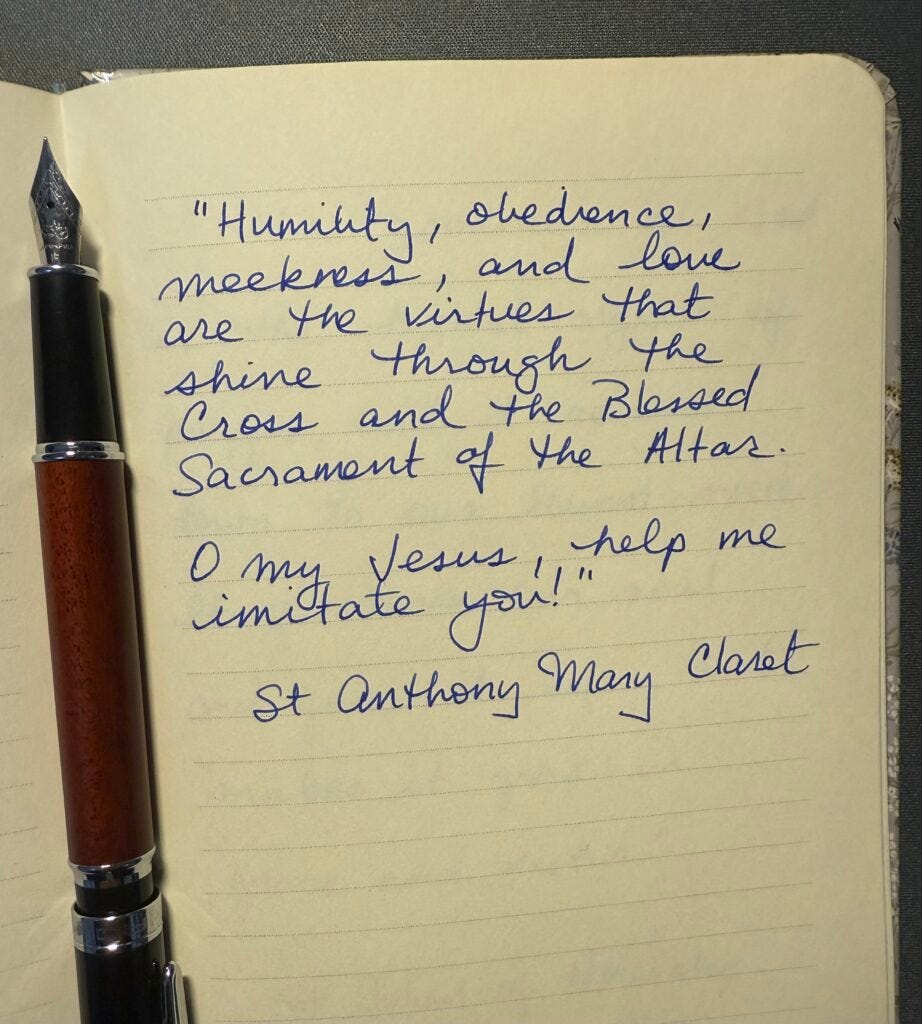 "Humility, obedience,
meekness, and love
are the virtues that
shine through the
Cross and the Blessed
Sacrament of the Altar.
O my Jesus, help me
imitate you!"
St Anthony Mary Claret